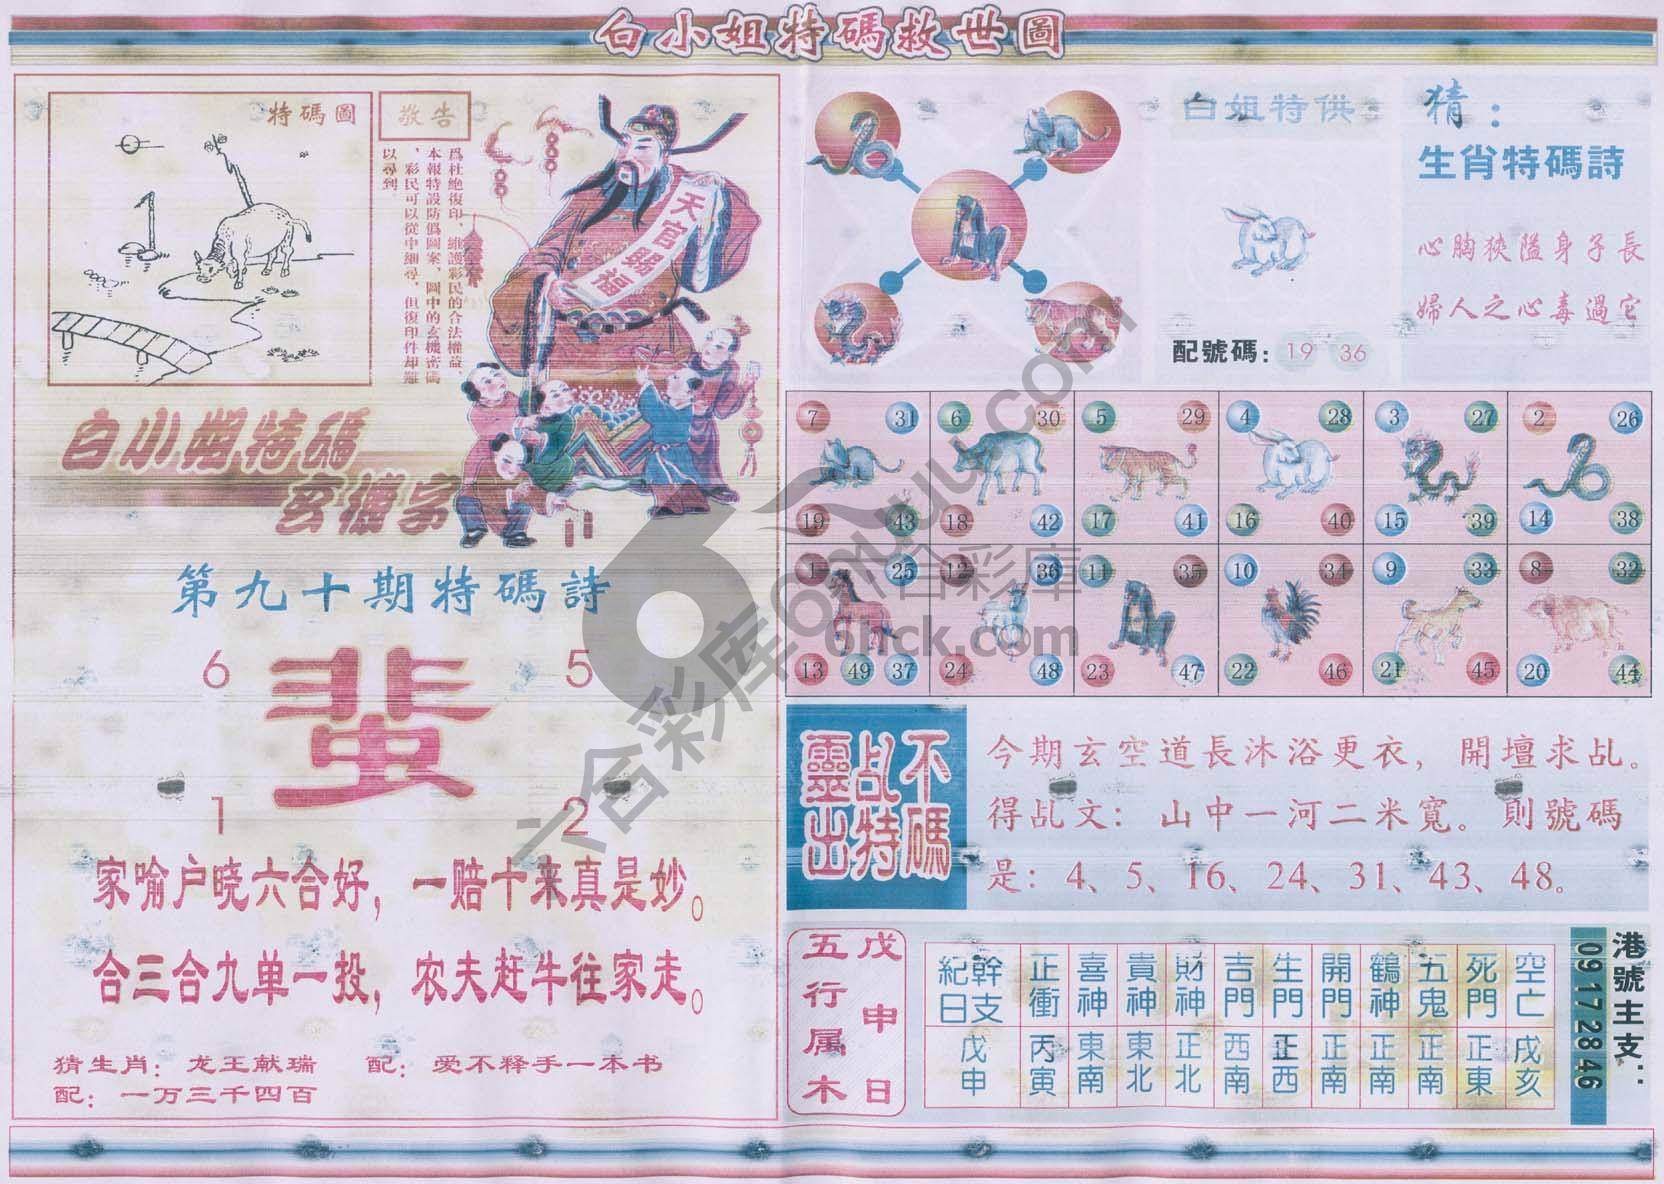 白小姐特碼救世圖
特碼圖
敬告
爲杜絶復印、維護彩民的合法權益、
本報特設防僞圖案、圖中的玄機密碼
、彩民可以從中細尋、但復印件却難
以尋到。
天官賜福
白小姐特碼
玄機字
第九十期特碼詩
6 5
蜚
1 2
家喻户晓六合好，一赔十来真是妙。
合三合九单一投，农夫赶牛往家走。
猜生肖：龙王献瑞 配：爱不释手一本书
配：一万三千四百
白姐特供
配號碼：19 36
猜：
生肖特碼詩
心胸狹隘身子長
婦人之心毒過它
7 31 6 30 5 29 4 28 3 27 2 26
19 43 18 42 17 41 16 40 15 39 14 38
1 25 12 36 11 35 10 34 9 33 8 32
13 49 37 24 48 23 47 22 46 21 45 20 44
不碼
乩特
靈出
今期玄空道長沐浴更衣，開壇求乩。
得乩文：山中一河二米寬。則號碼
是：4、5、16、24、31、43、48。
戊申日
五行属木
幹支紀日 正衝 喜神 貴神 財神 吉門 生門 開門 鶴神 五鬼 死門 空亡
戊申 丙寅 東南 東北 正北 西南 正西 正南 正南 正南 正東 戌亥
港號主支：
09 17 28 46
六合彩库 6htuku.com
六合彩庫
6hck.com